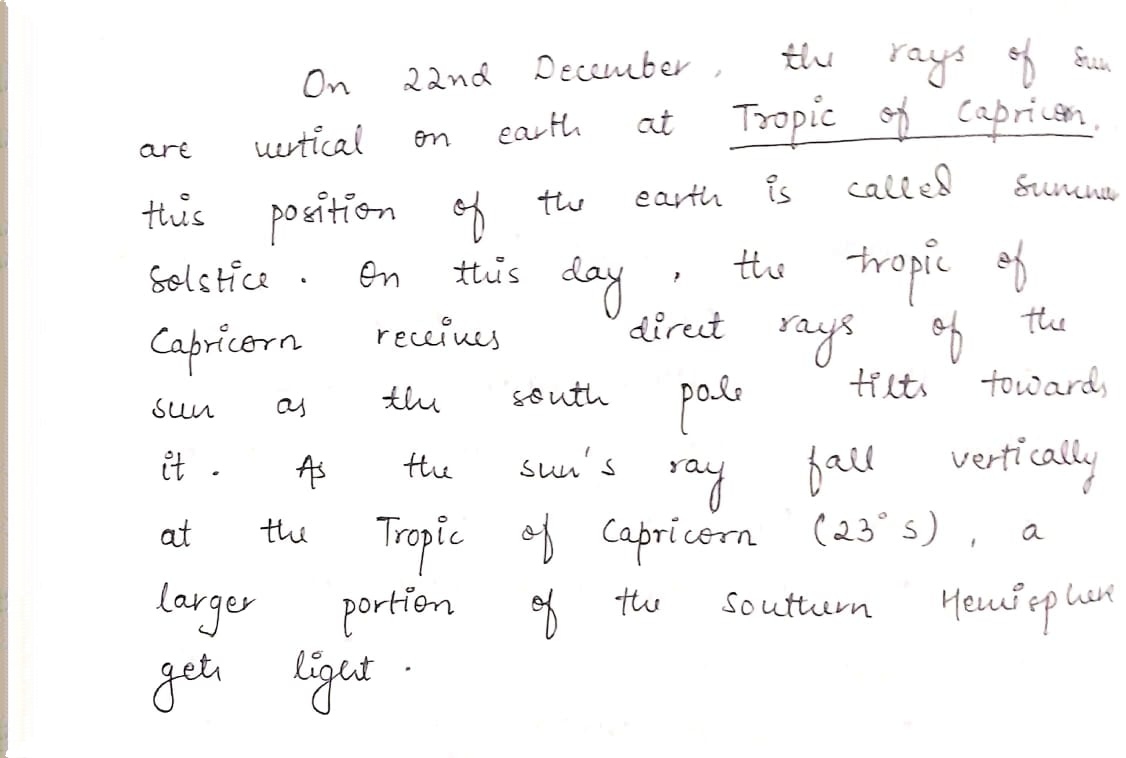 On 22nd December, the rays of Sun
are vertical on earth at Tropic of Capricon.
this position of the earth is called Summer
Solstice. On this day, the tropic of
Capricorn receives direct rays of the
sun as the south pole tilts towards
it. As the sun's ray fall vertically
at the Tropic of Capricorn (23° S), a
larger portion of the Southern Hemisphere
gets light.